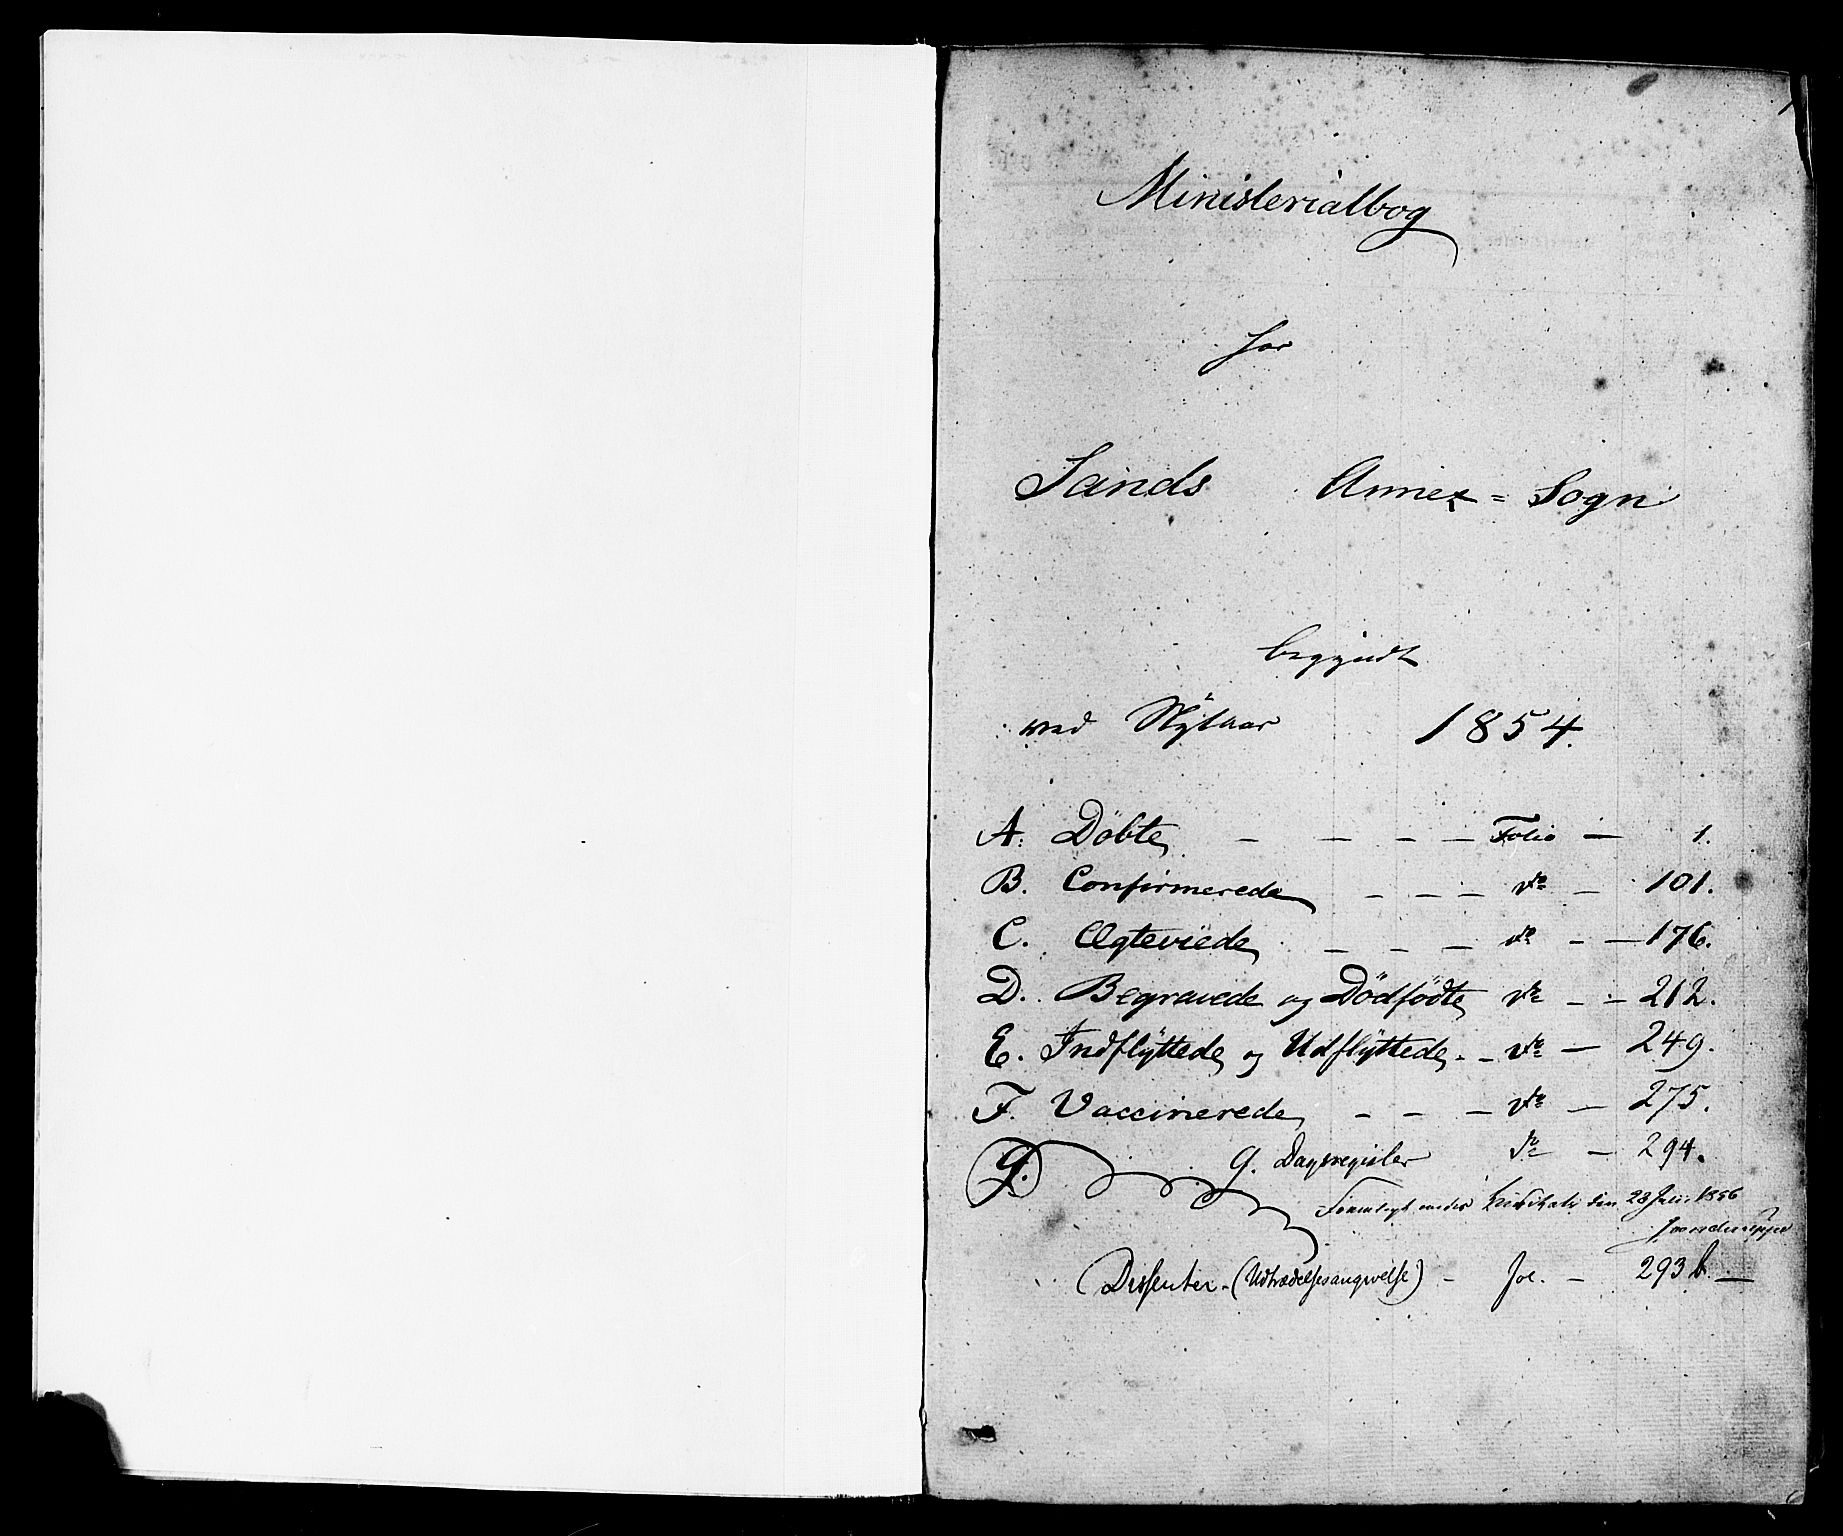 Ministerialbog
for
Sands Annex = Sogn
begyndt
ved Nÿtaar 1854.
A. Döbte, — — — — Folio — 1.
B. Confirmerede — — — do — 101.
C. Ægteviede, — — — do — — 176.
D. Begravede og Dödfödte, do — — 212.
E. Indflÿttede, og Udflÿttede, . — do — 249.
F. Vaccinerede, — — — do — 275.
G. G. Dagsregister do — 294.
Fremlagt under Kirkevisitats den 28 Juni 1856
Dissenter - (Udtrædelsesangivelse) - fol. - 293 b. —